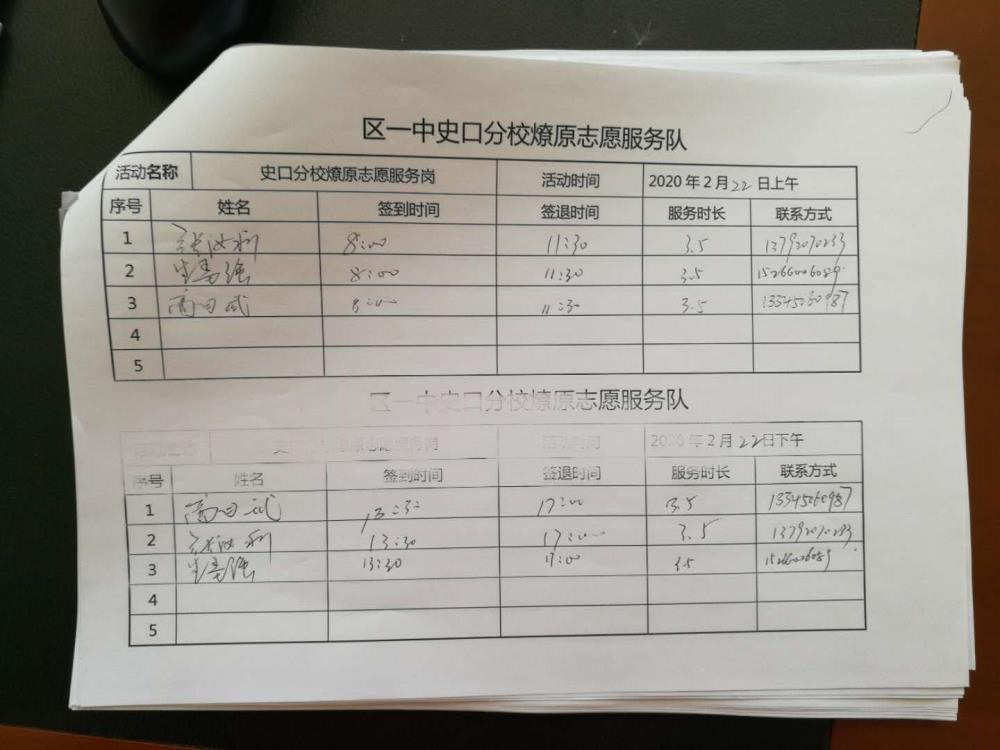 区一中史口分校燎原志愿服务队
活动名称 史口分校燎原志愿服务岗 活动时间 2020年2月22日上午
序号 姓名 签到时间 签退时间 服务时长 联系方式
1 8:00 11:30 3.5
2 8:00 11:30 3.5
3 8:00 11:30 3.5 13345060987
4
5
区一中史口分校燎原志愿服务队
活动名称 史口分校燎原志愿服务岗 活动时间 2020年2月22日下午
序号 姓名 签到时间 签退时间 服务时长 联系方式
1 13:30 17:00 3.5 13345060987
2 13:30 17:00 3.5
3 13:30 17:00 3.5
4
5